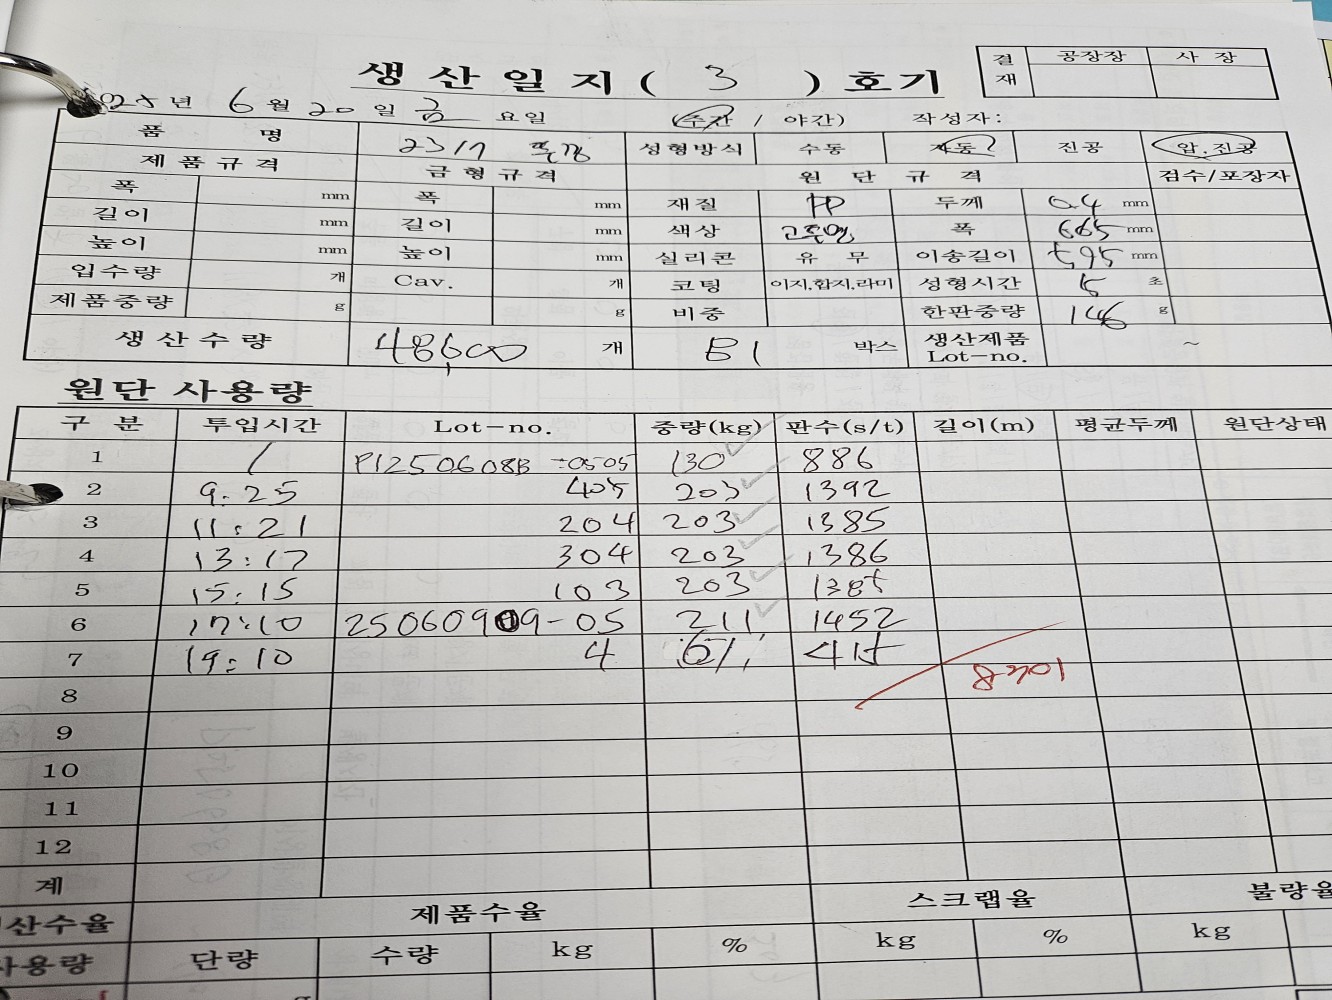 생산일지( 3 )호기
결재 공장장 사 장
년 6월 20일 금 요일 (주간 / 야간) 작성자:
품 명 성형방식 수동 자동 진공 압.진공
제품규격 금형규격 원단규격 검수/포장자
폭 mm 폭 mm 재질 PP 두께 0.4 mm
길이 mm 길이 mm 색상 폭 665 mm
높이 mm 높이 mm 실리콘 유 무 이송길이 595 mm
입수량 개 Cav. 개 코팅 이지.합지.라미 성형시간 초
제품중량 g g 비중 한판중량 146 g
생산수량 48,600 개 81 박스 생산제품 Lot-no. ~
원단 사용량
구 분 투입시간 Lot-no. 중량(kg) 판수(s/t) 길이(m) 평균두께 원단상태
1 / P1250608B -0505 130 886
2 9:25 405 203 1392
3 11:21 204 203 1385
4 13:17 304 203 1386
5 15:15 103 203 1385
6 17:10 25060909-05 211 1452
7 19:10 4 61 415
8 8301
9
10
11
12
계
산수율 제품수율 스크랩율 불량율
사용량 단량 수량 kg % kg % kg
g